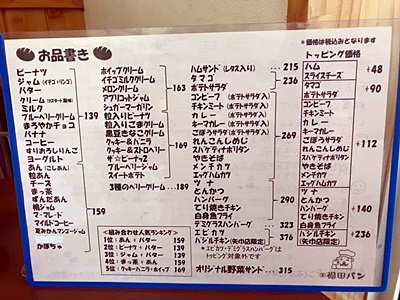 お品書き
*価格は税込みとなります
ピーナツ
ジャム(イチゴ・リンゴ)
バター
クリーム(カスタード風味)
ミルク
ブルーベリークリーム
まろやかチョコ
バナナ
コーヒー
すりおろしりんご
ヨーグルト
139
あん(こしあん)
粒あん
チーズ
まっ茶
ずんだあん
桃ジャム
マーマレード
マイルドコーヒー
夏みかんマンゴージャム
かぼちゃ
159
ホイップクリーム
イチゴミルククリーム
メロンクリーム
アプリコットジャム
シュガーマーガリン
163
粒入りピーナツ
粒入りごまクリーム
黒豆きなこクリーム
クッキー&バニラ
クッキー&ストロベリー
ザ☆ピーナツ2
ブルーベリージャム
スイートポテト
169
3種のベリークリーム…189
<組み合わせ人気ランキング>
1位:あん+バター 159
2位:ピーナツ+バター 139
3位:ジャム+バター 139
4位:まっ茶+あん 159
5位:クッキーバニラ+ホイップ 169
ハムサンド(レタス入り) 215
タマゴ
ポテトサラダ
235
コンビーフ(ポテトサラダ入)
チキンミート(ポテトサラダ入)
カレー(ポテトサラダ入)
キーマカレー(ポテトサラダ入)
ごぼうサラダ(ポテトサラダ入)
れんこんしめじ
スパゲティナポリタン
やきそば
メンチカツ
エッグハムカツ
269
ツナ
とんかつ
ハンバーグ
てり焼きチキン
白身魚フライ
290
デミグラスハンバーグ 323
エビカツ
ハシルチキン(矢巾店限定)
376
*エビカツ・デミグラスハンバーグは
トッピング対象外です
オリジナル野菜サンド…315
トッピング価格
ハム
スライスチーズ
+48
タマゴ
ポテトサラダ
+90
コンビーフ
チキンミート
カレー
キーマカレー
ごぼうサラダ
れんこんしめじ
スパゲティナポリタン
やきそば
メンチカツ
エッグハムカツ
+112
ツナ
とんかつ
ハンバーグ
てり焼きチキン
白身魚フライ
+140
ハシルチキン(矢巾店限定)
+236
福田パン